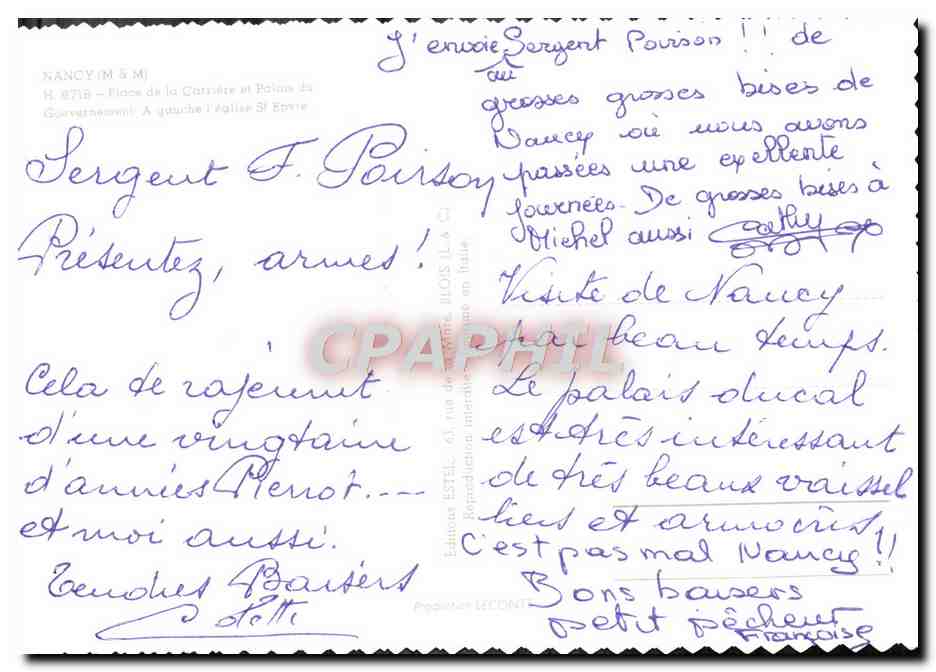 NANCY (M & M)
H. 8718 - Place de la Carrière et Palais du
Gouvernement. A gauche l'église St Epvre
Sergent F. Poirson
Présentez, armes!
Cela te rajeunit
d'une vingtaine
d'années Pierrot....
et moi aussi.
Tendres Baisers
Colette
J'envoie au Sergent Poirson !! de
grosses grosses bises de
Nancy où nous avons
passées une exellente
journées. De grosses bises à
Michel aussi Cathy
Visite de Nancy
par beau temps.
Le palais ducal
est très intéressant
de très beaux vaissel
liers et armoires
C'est pas mal Nancy !!
Bons baisers
petit pêcheur
Françoise
Editions ESTEL, 63, rue de BLOIS (L.& C)
Reproduction interdite Imprimé en Italie
Production LECONTE
CPAPHIL